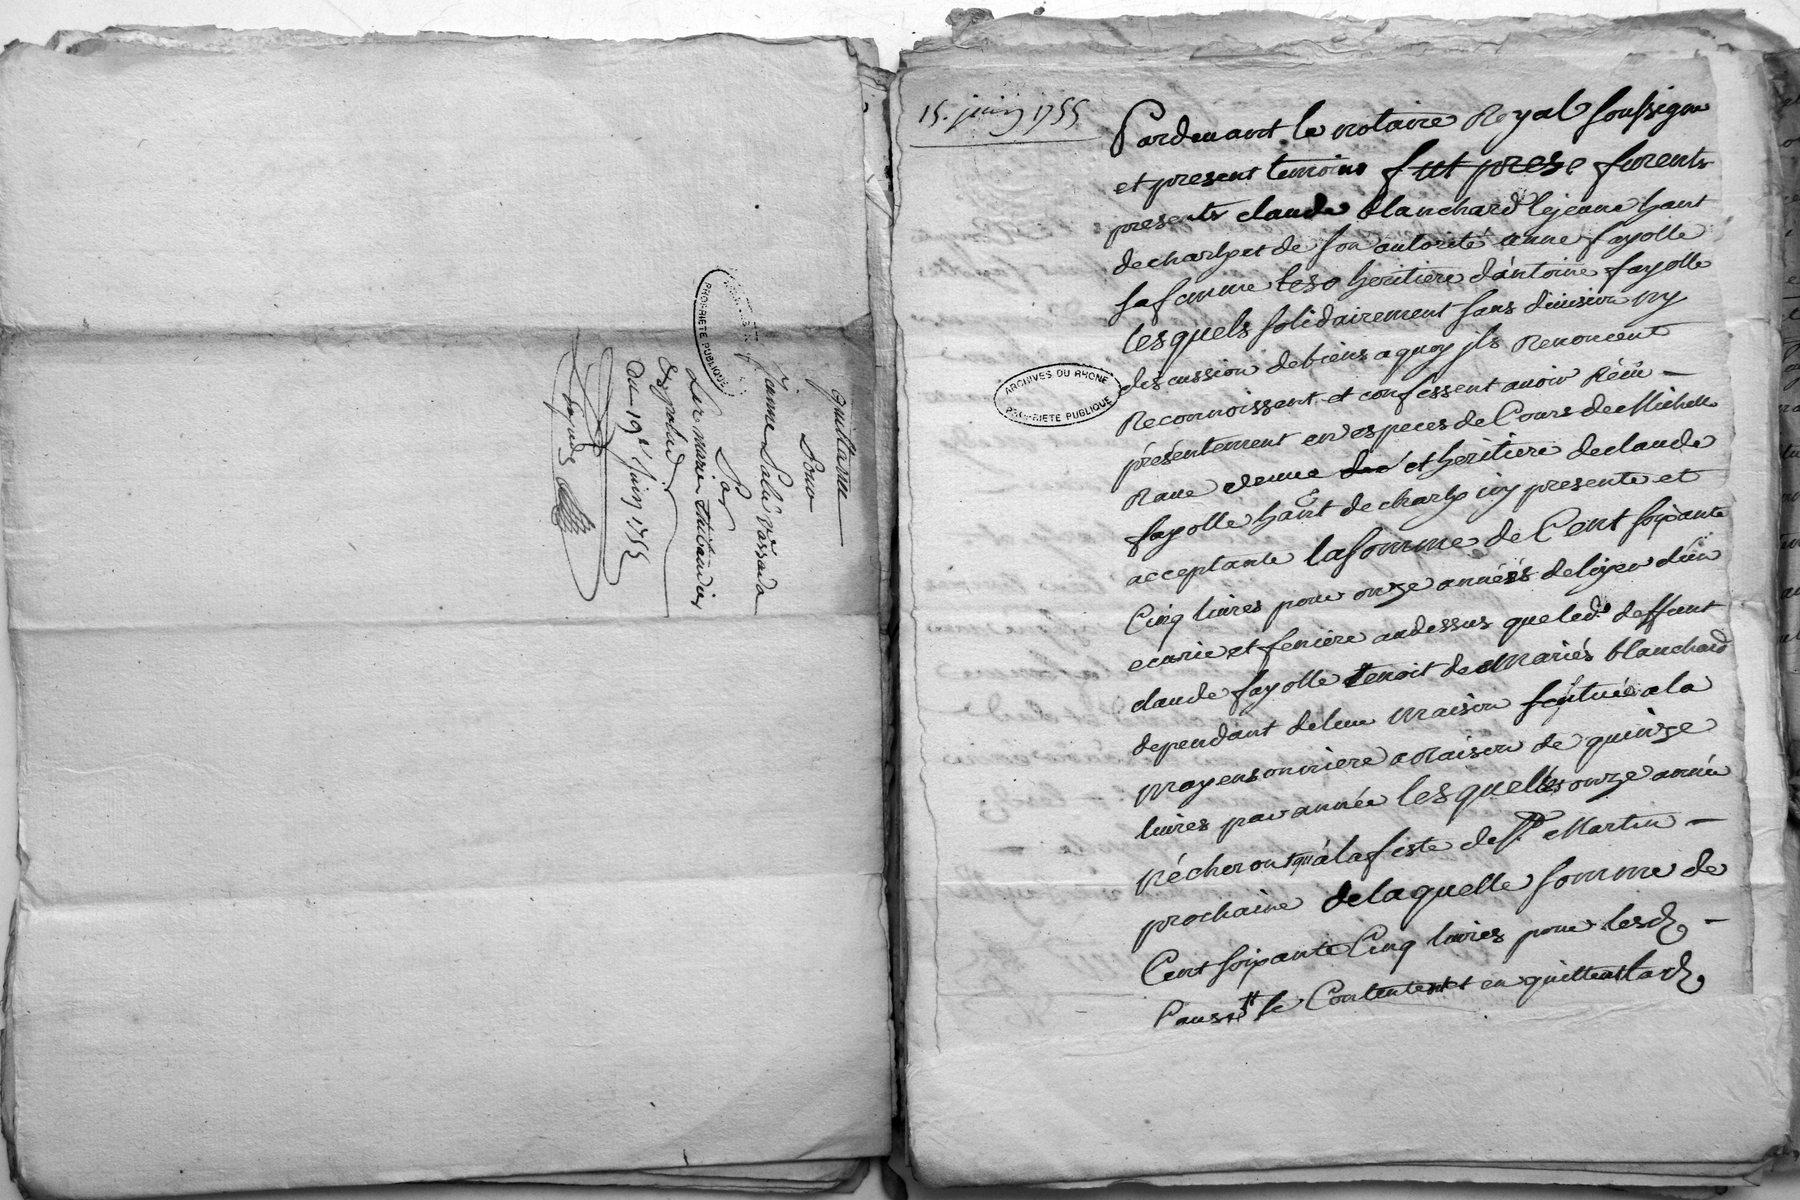 quittance
pour
Janne Lalu
par
Du 19e juin 1755
PROPRIETE PUBLIQUE
15. juin 1755
ARCHIVES DU RHONE
PROPRIETE PUBLIQUE
Pardevant le notaire Royal soussigne
et present temoins fut prese furents
presents claude blanchard lejeune hant
de charly et de son autorité anne fayolle
sa femme heritiere d'antoine fayolle
lesquels solidairement sans division ny
discussion de biens a quoy ils Renoncent
Reconnoissent et confessent avoir Réeü
présentement en especes de Cours de Michelle
Rave veuve et heritiere de claude
fayolle hant de charly icy presente et
acceptante la somme de Cent soixante
Cinq livres pour onze années de loyer d'un
ecurie et feniere au dessus que led. deffunt
claude fayolle tenoit de Mariés blanchard
dependant de leur maison scituée a la
mayensonniere a Raison de quinze
livres par année lesquelles onze année
Récheront qu'a la feste de St. Martin
prochaine de laquelle somme de
Cent soixante Cinq livres pour lesd.
se Contentent et en quittent lad.